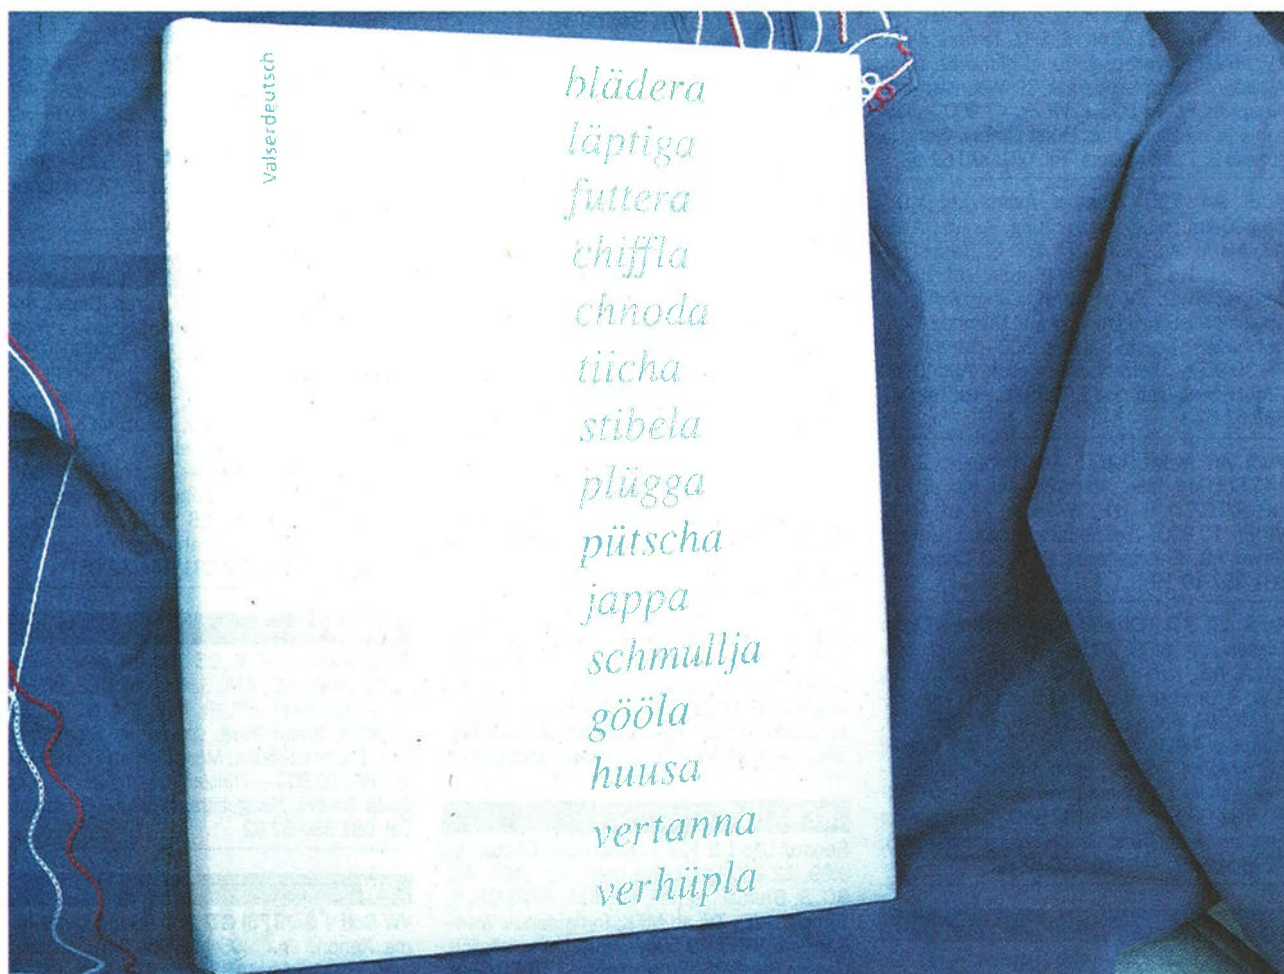 Valserdeutsch
blädera
läptiga
futtera
chiffla
chnoda
tiicha
stibela
plügga
pütscha
jappa
schmullja
gööla
huusa
vertanna
verhüpla